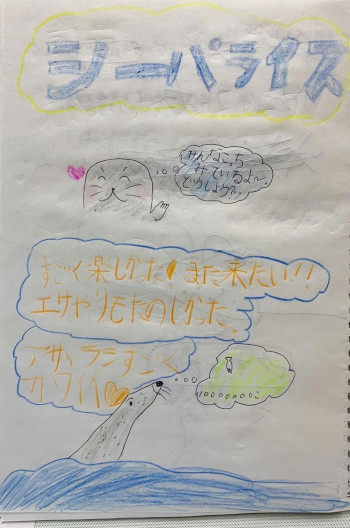 シーパライス
みんなこっち
みているよ〜
どうしよう?。
すごく楽しかった!また来たい!!
エサやりもたのしかった。
アザラシすごく
カワイイ